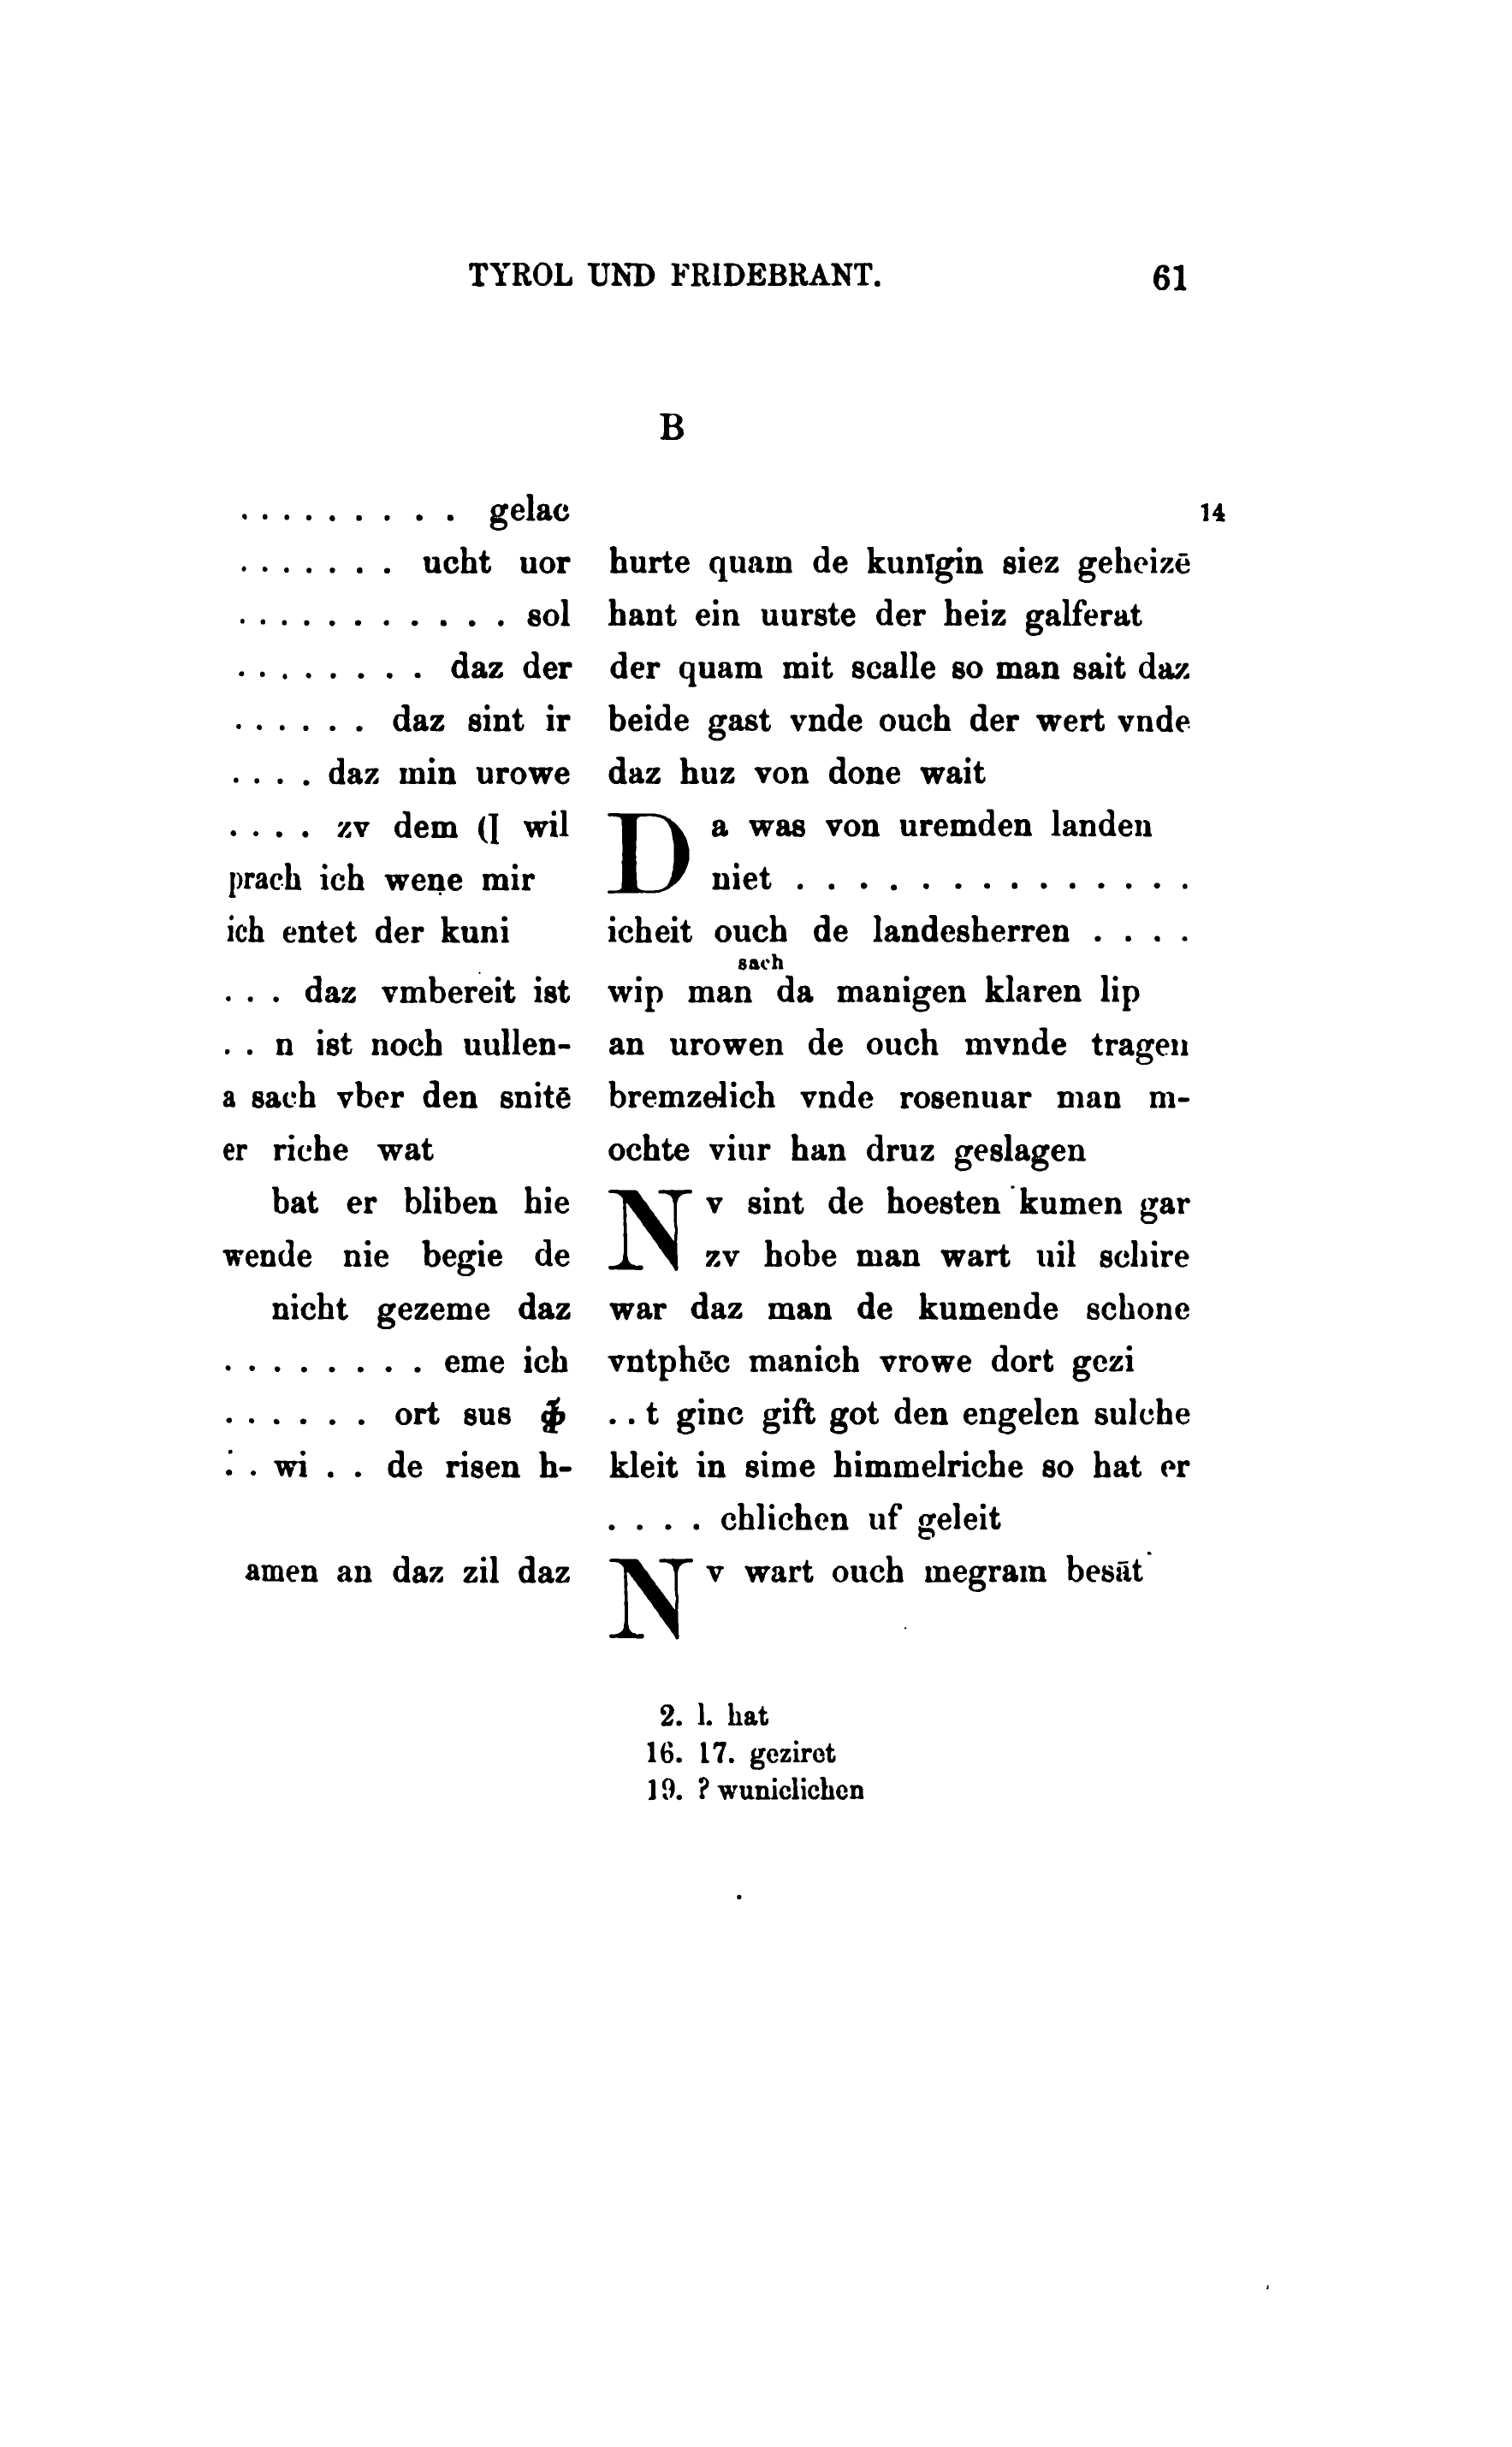 TYROL UND FRIDEBRANT. 61
B
. . . . . . . . . gelac
. . . . . . . ucht uor
. . . . . . . . . . . . sol
. . . . . . . . daz der
. . . . . . daz sint ir
. . . . daz min urowe
. . . . zv dem (I wil
prach ich wene mir
ich entet der kuni
. . . daz vmbereit ist
. . n ist noch uullen-
a sach vber den snitē
er riche wat
bat er bliben hie
wende nie begie de
nicht gezeme daz
. . . . . . . . eme ich
. . . . . . ort sus
. . wi . . de risen h-
amen an daz zil daz
14
hurte quam de kunīgin siez geheizē
hant ein uurste der heiz galferat
der quam mit scalle so man sait daz
beide gast vnde ouch der wert vnde
daz huz von done wait
Da was von uremden landen
niet . . . . . . . . . . . . . .
icheit ouch de landesherren . . . .
sach
wip man da manigen klaren lip
an urowen de ouch mvnde tragen
bremzelich vnde rosenuar man m-
ochte viur han druz geslagen
Nv sint de hoesten kumen gar
zv hobe man wart uil schire
war daz man de kumende schone
vntphēc manich vrowe dort gezi
. . t ginc gift got den engelen sulche
kleit in sime himmelriche so hat er
. . . . chlichen uf geleit
Nv wart ouch megram besāt
2. l. hat
16. 17. geziret
19. ? wuniclichen